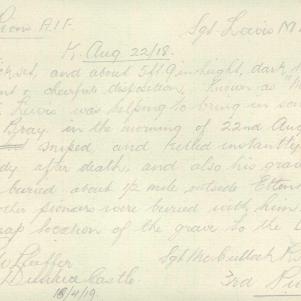 Pioneers A.I.F. Sgt Lewis M.
K. Aug 22/18.
set, and about 5ft 9 in height, dark
cheerful disposition, known as
Lewis was helping to bring in
Bray in the morning of 22nd Aug
sniped and killed instantly
after death, and also his grave
buried about ½ mile outside
other pioneers were buried with him
location of the grave to the
Sgt McCulloch
Castle. 3rd
18/4/19.